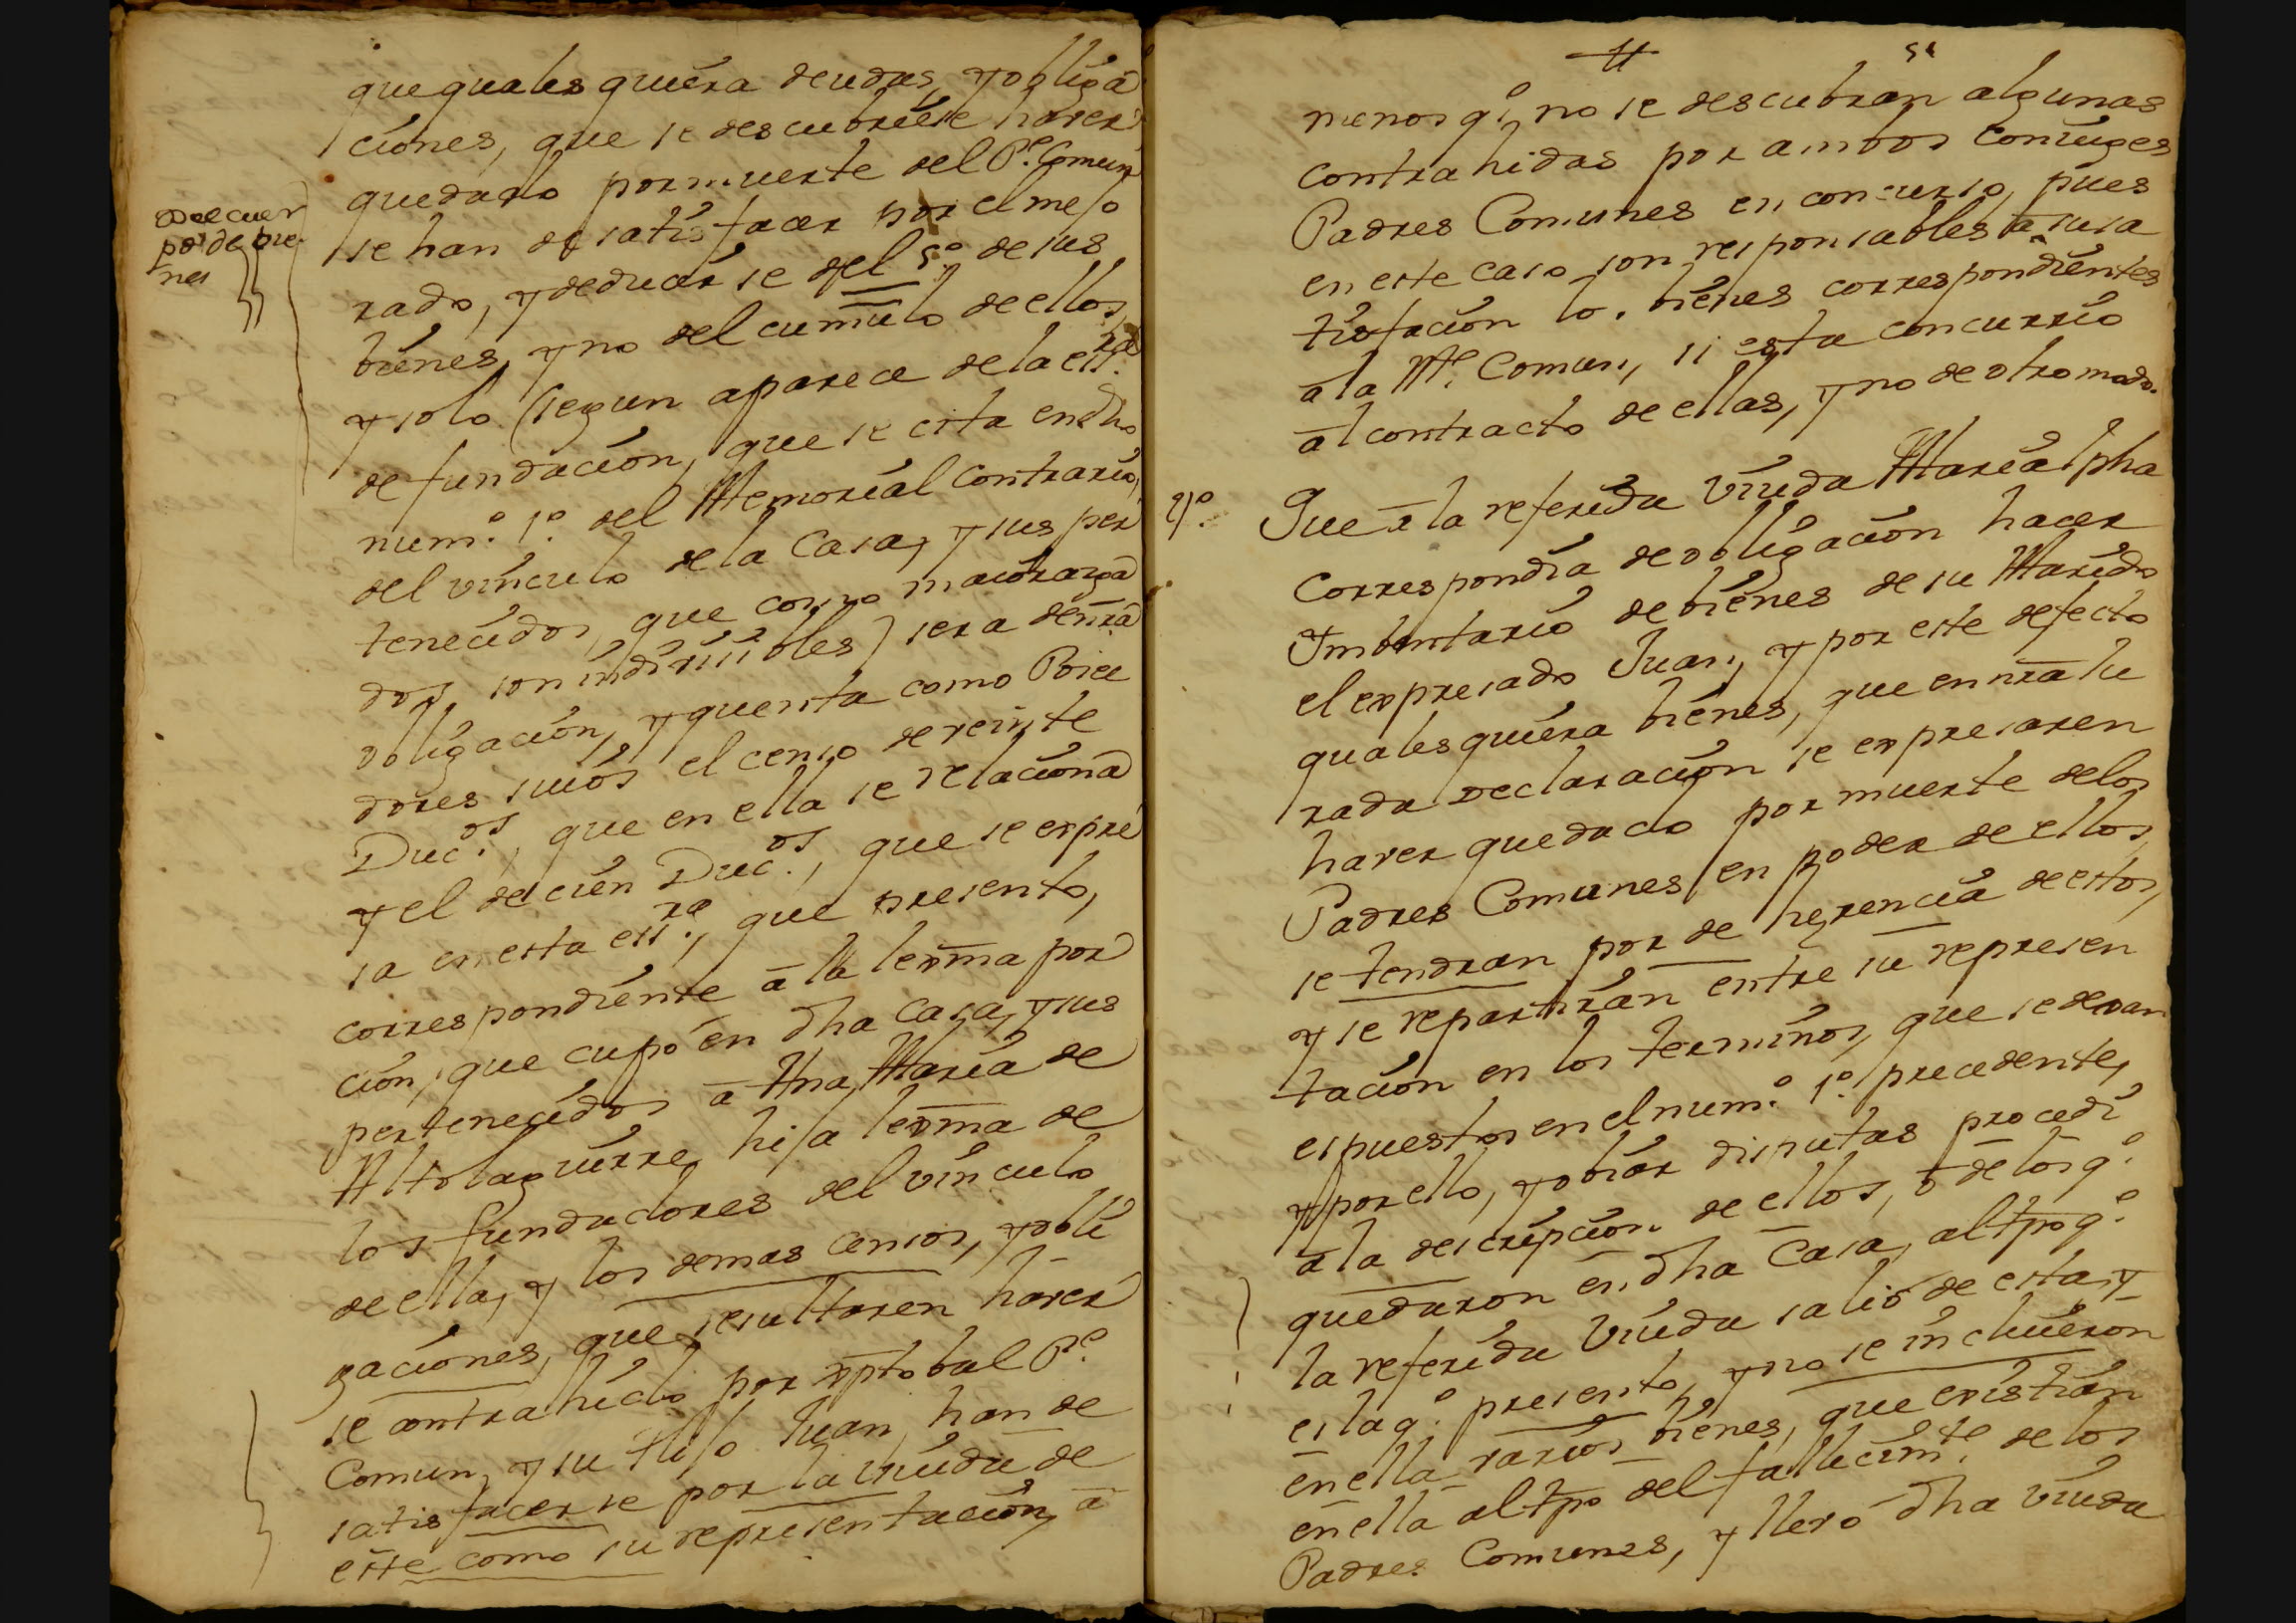 que quales quiera deudas, y obliga
ciones, que se descubriese haver
quedado por muerte del Pe. Comun
se han de satisfacer por el mejo
rado, y deducirse del 5o. de sus
bienes, y no del cumulo de ellos,
y solo (segun aparece de la essra.
de fundacion, que se cita en dho
num.o 1.o del Memorial contrario,
del vinculo de la Casa, y sus per
tenecidos, que como maiorazga
dos son indivisibles) sera de nra
obligacion, y quenta como Posee
dores suios el censo de veinte
Duc.os, que en ella se relaciona
y el de cien Duc.os, que se expre
sa en esta essra., que presento,
correspondiente â la lexma por
cion, que cupo en dha Casa, y sus
pertenecidos â Ana Maria de
Altolaguirre, hija lexma de
los fundadores del vinculo
de ella, y los demas censos, y obli
gaciones, que resultaren haver
se contrahido por xptobal Pe.
Comun, y su Hijo Juan, han de
satisfacerse por la viuda de
este como su representacion, â
De el cuer
po de bie
nes
menos qe. no se descubran algunas
contrahidas por ambos conjuges
Padres Comunes en concurso, pues
en este caso son responsables â su sa
tisfacion los bienes correspondientes
â la Me. Comun, si esta concurrio
âl contracto de ellas, y no de otro modo.
2o. Que â la referida viuda Maria Jpha
correspondia de obligacion hacer
Imbentario de bienes de su Marido
el expresado Juan, y por este defecto
quales quiera bienes, que en nra Ju
rada declaracion se expresaren
haver quedado por muerte de los
Padres Comunes, en poder de ellos,
se tendran por de herencia de estos,
y se repartiran entre su represen
tacion en los terminos, que se dexan
espuestos en el num.o 1.o precedente,
y por ello, y obiar disputas procedi
â la descripcion de ellos, o de los qe.
quedaron en dha Casa, al tpo qe.
la referida Viuda salio de esta, y
es la qe. presento, y no se incluieron
en ella varios bienes, que existian
en ella al tpo del fallecimte. de los
Padres Comunes, y llevo dha viuda